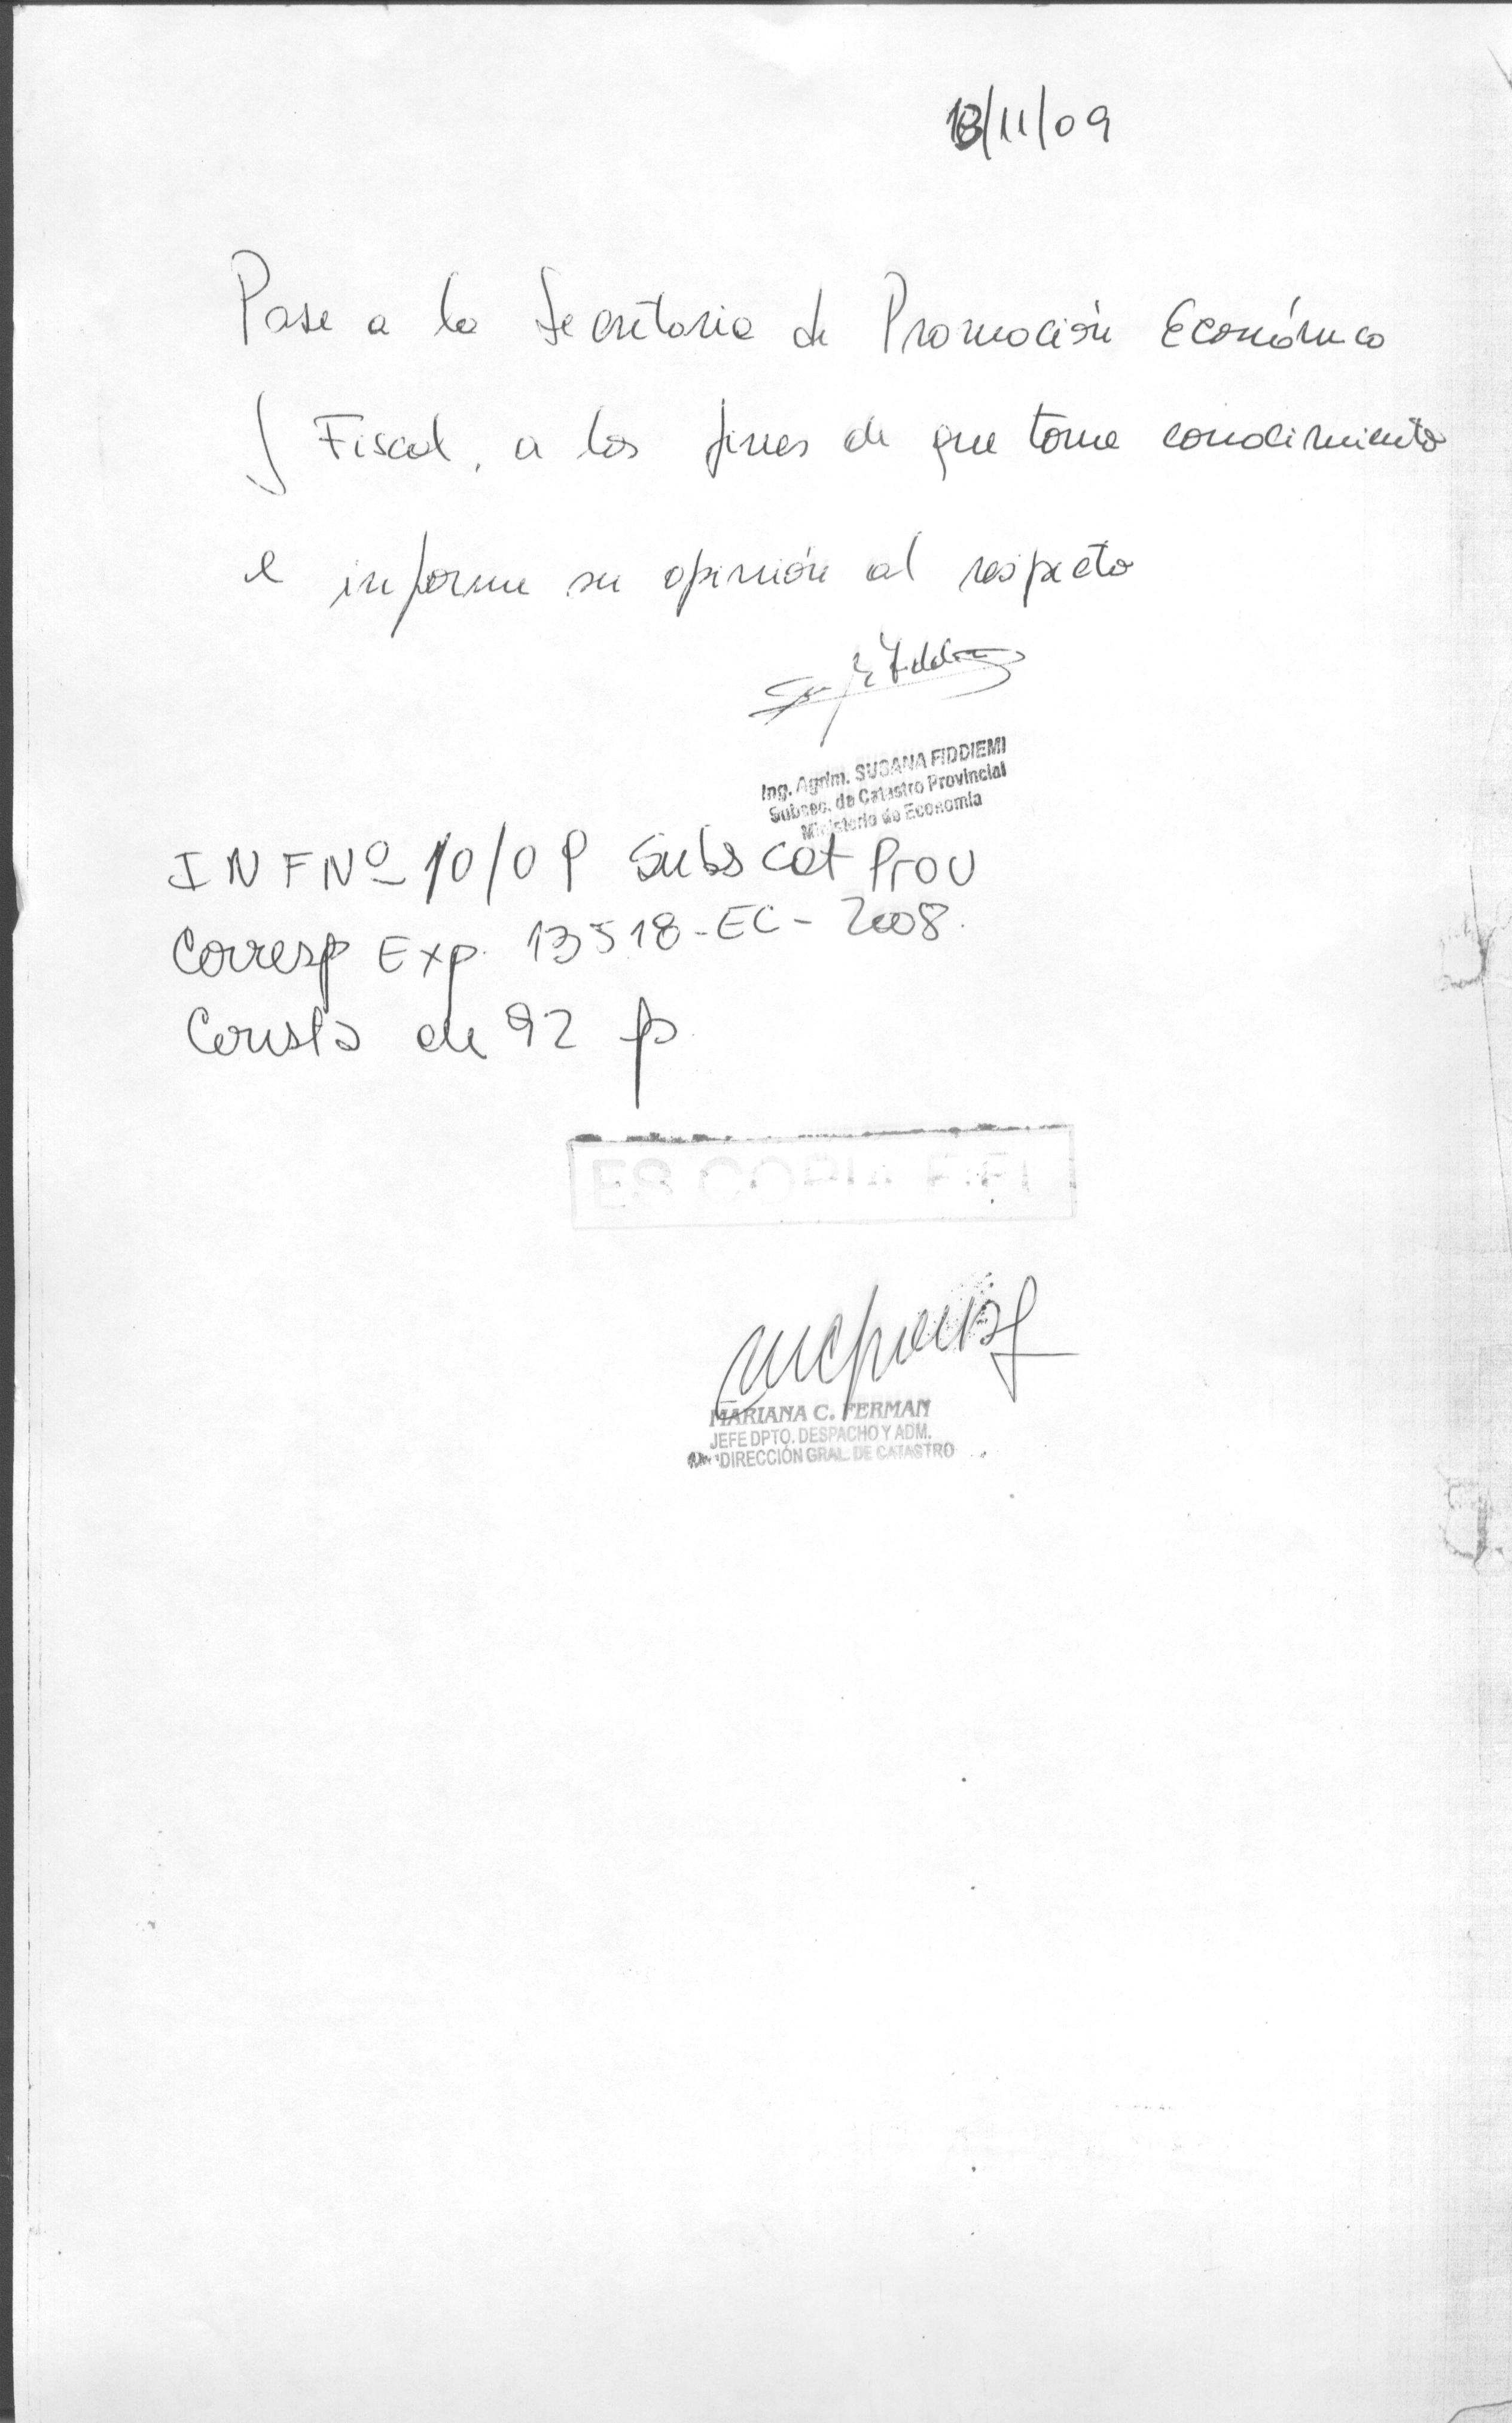 18/11/09
Pase a la Secretaria de Promoción Económica
y Fiscal, a los fines de que tome conocimiento
e informe su opinión al respecto
Ing. Agrim. SUSANA FIDDIEMI
Subsec. de Catastro Provincial
Ministerio de Economía
INF Nº 10/09 Subs Cat Prov
Corresp Exp. 13518-EC-2008.
Consta de 92 fs
ES COPIA FIEL
MARIANA C. FERMAN
JEFE DPTO. DESPACHO Y ADM.
DIRECCIÓN GRAL. DE CATASTRO